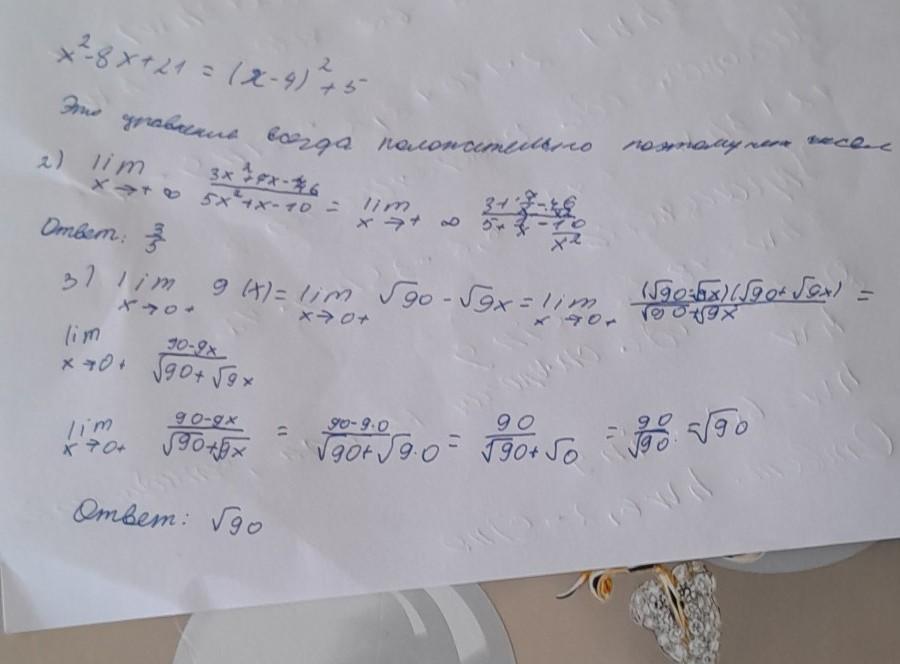 x²-8x+21 = (x-4)²+5
Это уравнение всегда положительно поэтому нет чисел
2) lim x→+∞ (3x²+7x-46)/(5x²+x-10) = lim x→+∞ (3+7/x-46/x²)/(5+1/x-10/x²)
Ответ: 3/5
3) lim x→0+ g(x) = lim x→0+ √90 - √9x = lim x→0+ (√90-√9x)(√90+√9x)/(√90+√9x) =
lim x→0+ (90-9x)/(√90+√9x)
lim x→0+ (90-9x)/(√90+√9x) = (90-9·0)/(√90+√9·0) = 90/(√90+√0) = 90/√90 = √90
Ответ: √90